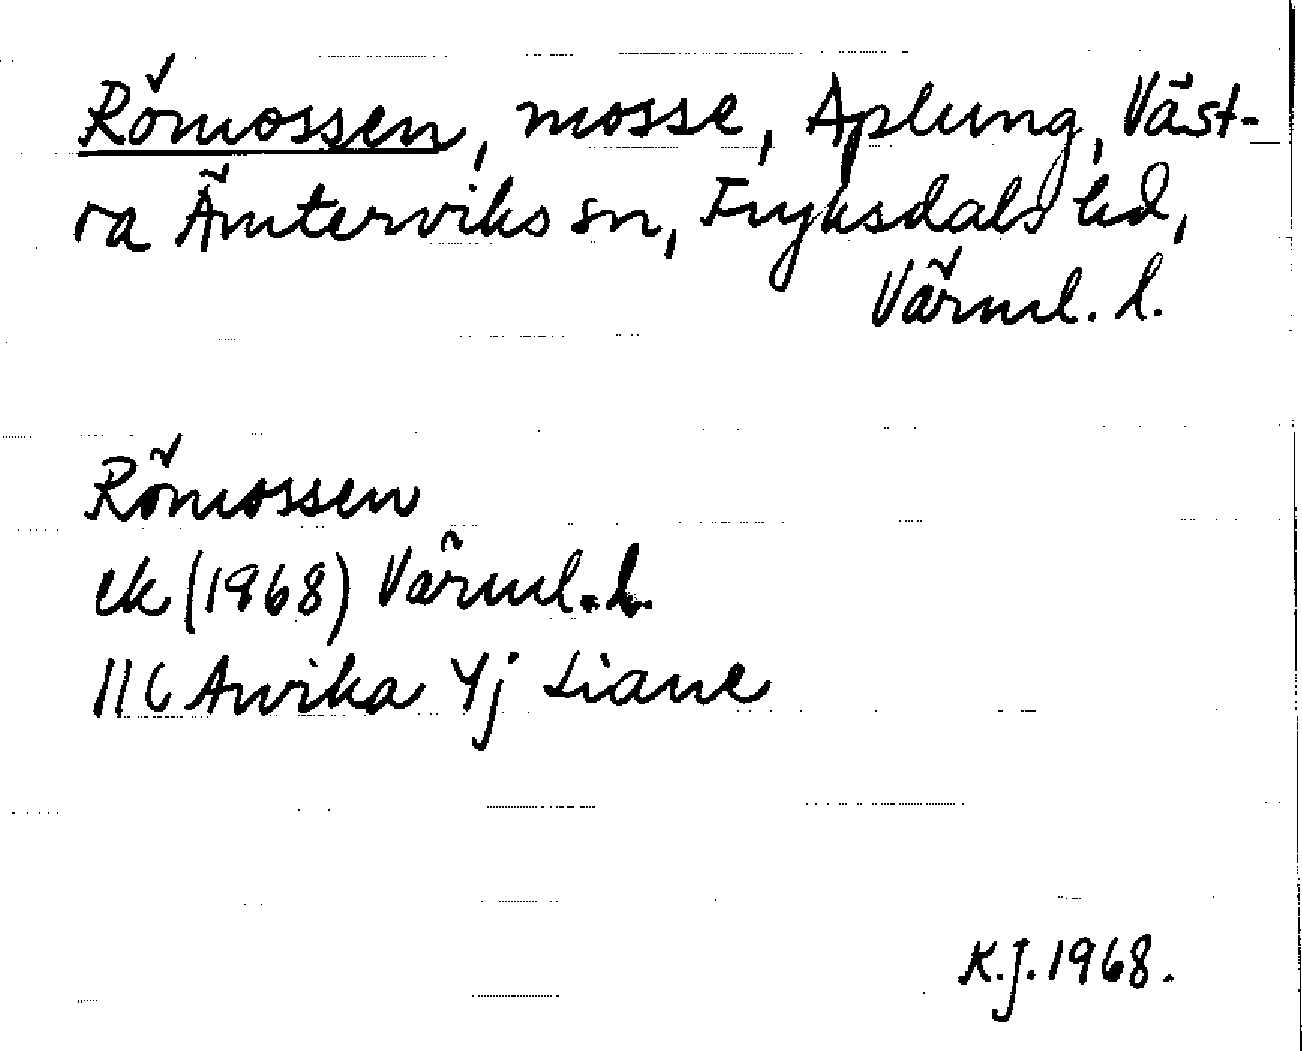 Römossen, mosse, Aplung, Väst-
ra Ämterviks sn, Fryksdals hd,
Värml. l.
Römossen
ek (1968) Värml. l.
11C Arvika 4j Liane
K.J. 1968.